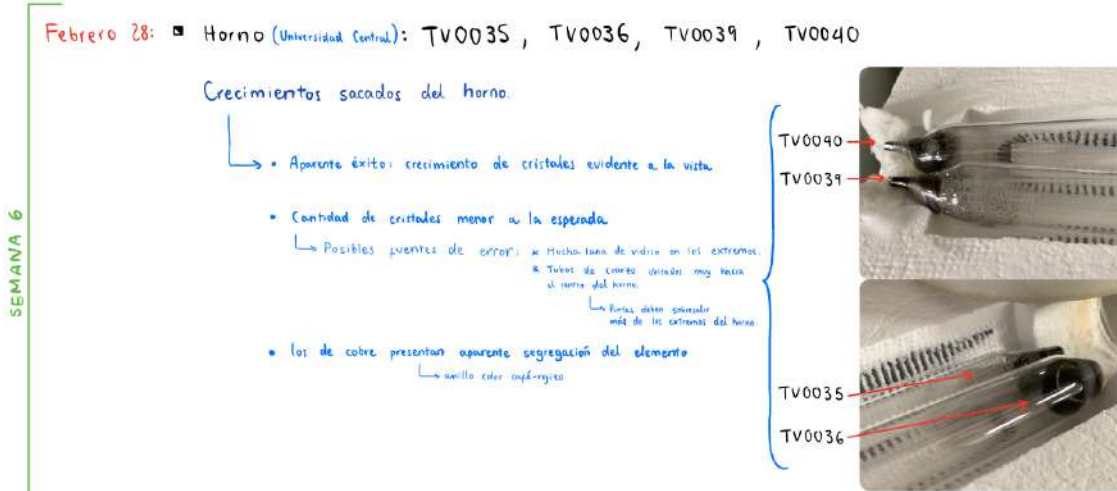 SEMANA 6
Febrero 28: Horno (Universidad Central): TV0035, TV0036, TV0039, TV0040
Crecimientos sacados del horno.
• Aparente éxito: crecimiento de cristales evidente a la vista
• Cantidad de cristales menor a la esperada
Posibles fuentes de error: * Mucha lana de vidrio en los extremos.
* Tubos de cuarzo ubicados muy hacia
el centro del horno.
Puntas deben sobresalir
más de los extremos del horno
• los de cobre presentan aparente segregación del elemento
anillo color café-rojizo
TV0040
TV0039
TV0035
TV0036